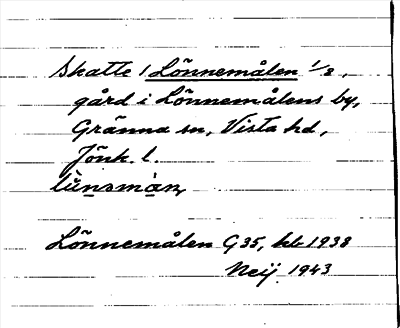 Skatte 1 Lönnemålen 1/2,
gård i Lönnemålens by,
Gränna sn, Vista hd,
Jönk. l.
lùnsmàn,
Lönnemålen G35, kb 1938
Neij 1943